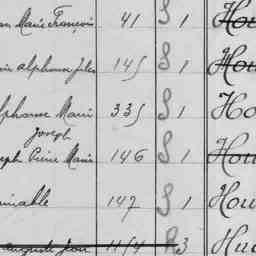 Marie François 41 S 1 Hou
Alphonse Jules 145 S 1 Hou
Alphonse Marie 335 S 1 Ho
Joseph
Joseph Pierre Marie 146 S 1 Hou
Aimable 147 S 1 Hou
Auguste Jean 1154 R 3 Hu